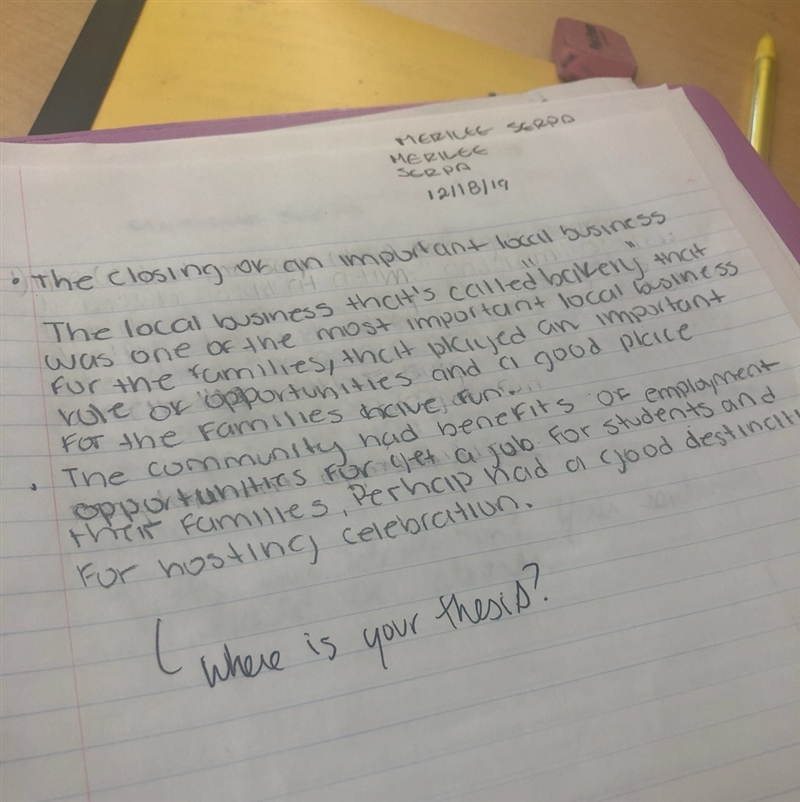 MERILEE SERPA
MERILEE
SERPA
12/18/19
The closing of an important local business
The local business that's called "bakery" that
was one of the most important local business
for the families, that played an important
rule of opportunities and a good place
for the families have fun.
The community had benefits of employment
opportunities for get a job for students and
their families, Perhap had a good destinati
for hosting celebration.
Where is your thesis?